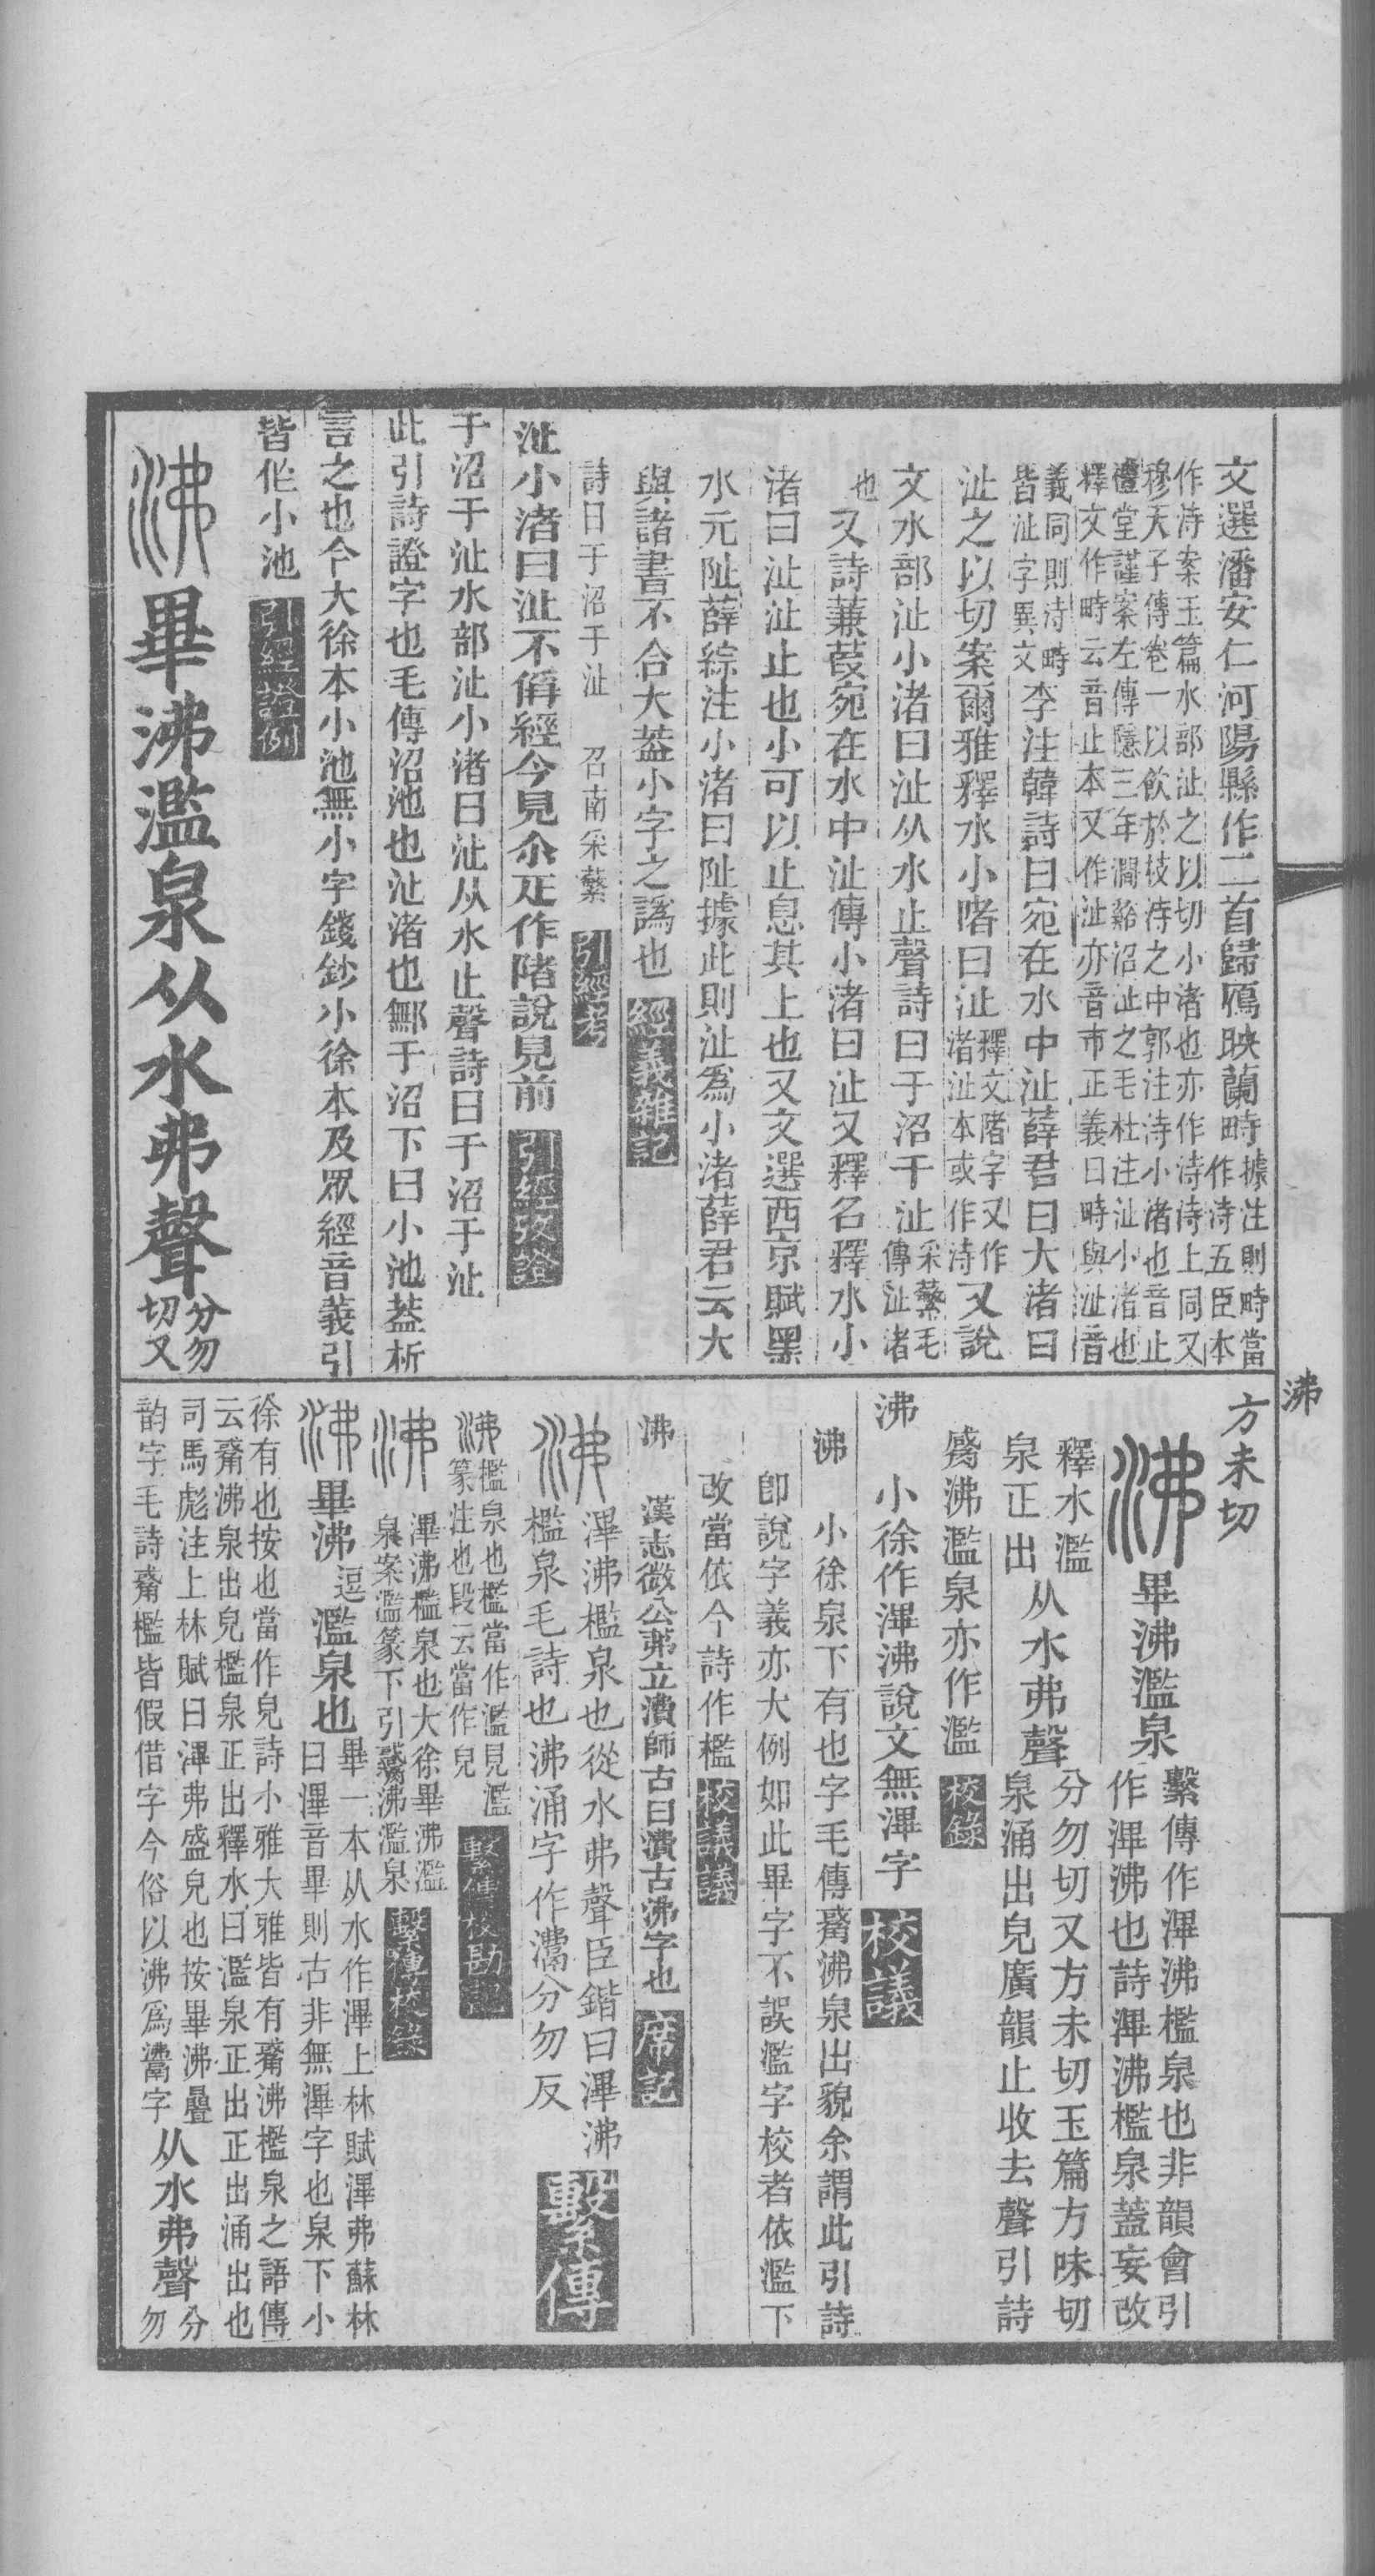 文選潘安仁河陽縣作二首歸鴈映蘭畤據注則畤當
作沶五臣本
作沶案玉篇水部沚之以切小渚也亦作沶沶上同又
穆天子傳卷一以飲於枝沶之中郭注沶小渚也音止
禮堂謹案左傳隱三年澗谿沼沚之毛杜注沚小渚也
釋文作畤云音止本又作沚亦音市正義曰畤與沚音
義同則沶畤
皆沚字異文李注韓詩曰宛在水中沚薛君曰大渚曰
沚之以切案爾雅釋水小陼曰沚釋文陼字又作
渚沚本或作沶又說
文水部沚小渚曰沚从水止聲詩曰于沼于沚采蘩毛
傳沚渚
也又詩蒹葭宛在水中沚傳小渚曰沚又釋名釋水小
渚曰沚沚止也小可以止息其上也又文選西京賦黑
水元阯薛綜注小渚曰阯據此則沚爲小渚薛君云大
與諸書不合大葢小字之譌也 經義雜記
詩曰于沼于沚 召南采蘩 引經考
沚小渚曰沚不偁經今見尒疋作陼說見前 引經攷證
于沼于沚水部沚小渚曰沚从水止聲詩曰于沼于沚
此引詩證字也毛傳沼池也沚渚也鄦于沼下曰小池葢析
言之也今大徐本小池無小字錢鈔小徐本及眾經音義引
皆作小池 引經證例
沸 畢沸濫泉从水弗聲分勿
切又
沸
方未切
沸 畢沸濫泉繫傳作滭沸檻泉也非韻會引
作滭沸也詩滭沸檻泉蓋妄改
釋水濫
泉正出从水弗聲分勿切又方未切玉篇方味切
泉涌出皃廣韻止收去聲引詩
觱沸濫泉亦作濫 校錄
沸 小徐作滭沸說文無滭字 校議
沸 小徐泉下有也字毛傳觱沸泉出貌余謂此引詩
卽說字義亦大例如此畢字不誤濫字校者依濫下
改當依今詩作檻 校議議
沸 漢志微公茀立潰師古曰潰古沸字也 席記
沸 滭沸檻泉也從水弗聲臣鍇曰滭沸
檻泉毛詩也沸涌字作灊分勿反 繫傳
沸檻泉也檻當作濫見濫
篆注也段云當作皃 繫傳校勘記
沸 滭沸檻泉也大徐畢沸濫
泉案濫篆下引觱沸濫泉 繫傳校錄
沸 畢沸逗濫泉也畢一本从水作滭上林賦滭弗蘇林
曰滭音畢則古非無滭字也泉下小
徐有也按也當作皃詩小雅大雅皆有觱沸檻泉之語傳
云觱沸泉出皃檻泉正出釋水曰濫泉正出正出涌出也
司馬彪注上林賦曰滭弗盛皃也按畢沸疊
韵字毛詩觱檻皆假借字今俗以沸爲灊字从水弗聲分
勿